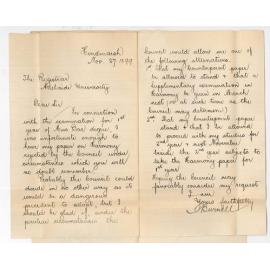 Hindmarsh
Nov. 27 1899
The Registrar
Adelaide University
Dear Sir
In connection
with the examination for 1st
year of Mus Bac degree, I
was unfortunate enough to
have my paper on Harmony
rejected by the Council under
circumstances which you will
no doubt remember.
Probably the Council could
decide in no other way as it
would be a dangerous
precedent to adopt, but I
should be glad if, under the
peculiar circumstances the
Council would allow me one of
the following alternatives
1st That my Counterpoint paper
be allowed to stand & that a
Supplementary examination in
Harmony be given in March
next (or at such time as the
Council may determine)
2nd That my Counterpoint paper
stand & that I be allowed
to proceed with my studies for
2nd year & next November
beside the 2nd year subjects to
take the Harmony paper for
1st year
Hoping the Council will
favorably consider my request
I am
Yours faithfully